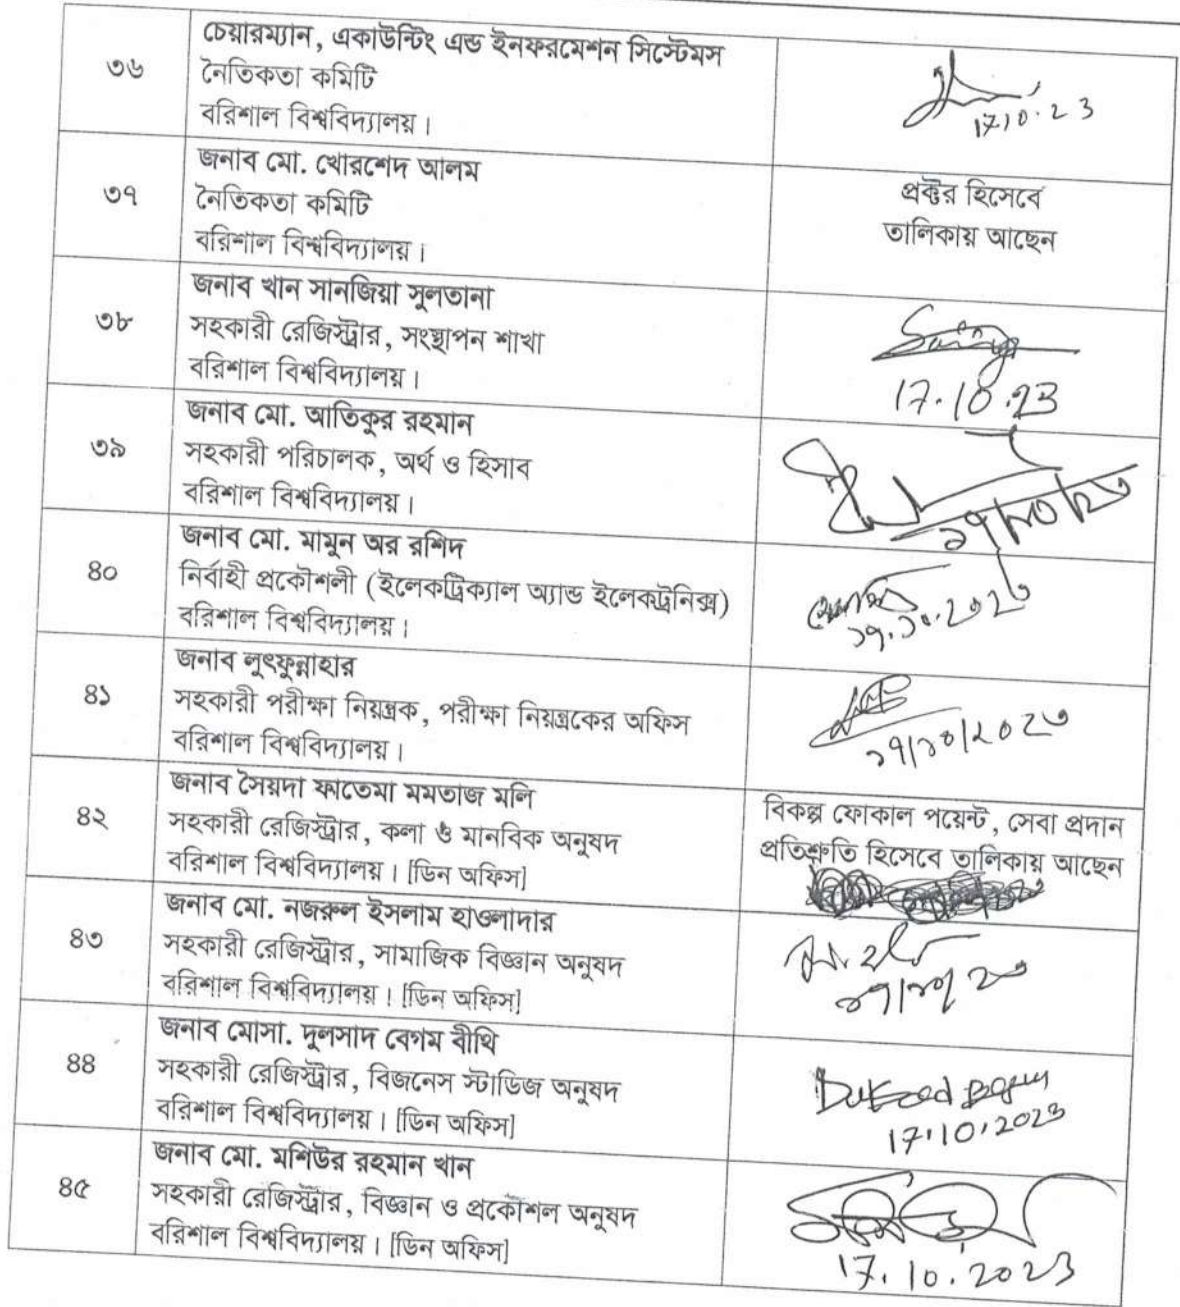 ৩৬
চেয়ারম্যান, একাউন্টিং এন্ড ইনফরমেশন সিস্টেমস
নৈতিকতা কমিটি
বরিশাল বিশ্ববিদ্যালয়।
17.10.23
৩৭
জনাব মো. খোরশেদ আলম
নৈতিকতা কমিটি
বরিশাল বিশ্ববিদ্যালয়।
প্রক্টর হিসেবে
তালিকায় আছেন
৩৮
জনাব খান সানজিয়া সুলতানা
সহকারী রেজিস্ট্রার, সংস্থাপন শাখা
বরিশাল বিশ্ববিদ্যালয়।
17.10.23
৩৯
জনাব মো. আতিকুর রহমান
সহকারী পরিচালক, অর্থ ও হিসাব
বরিশাল বিশ্ববিদ্যালয়।
১৭/১০/২৩
৪০
জনাব মো. মামুন অর রশিদ
নির্বাহী প্রকৌশলী (ইলেকট্রিক্যাল অ্যান্ড ইলেকট্রনিক্স)
বরিশাল বিশ্ববিদ্যালয়।
১৭.১০.২০২৩
৪১
জনাব লুৎফুন্নাহার
সহকারী পরীক্ষা নিয়ন্ত্রক, পরীক্ষা নিয়ন্ত্রকের অফিস
বরিশাল বিশ্ববিদ্যালয়।
১৭/১০/২০২৩
৪২
জনাব সৈয়দা ফাতেমা মমতাজ মলি
সহকারী রেজিস্ট্রার, কলা ও মানবিক অনুষদ
বরিশাল বিশ্ববিদ্যালয়। [ডিন অফিস]
বিকল্প ফোকাল পয়েন্ট, সেবা প্রদান
প্রতিশ্রুতি হিসেবে তালিকায় আছেন
৪৩
জনাব মো. নজরুল ইসলাম হাওলাদার
সহকারী রেজিস্ট্রার, সামাজিক বিজ্ঞান অনুষদ
বরিশাল বিশ্ববিদ্যালয়। [ডিন অফিস]
১৭/১০/২৩
৪৪
জনাব মোসা. দুলসাদ বেগম বীথি
সহকারী রেজিস্ট্রার, বিজনেস স্টাডিজ অনুষদ
বরিশাল বিশ্ববিদ্যালয়। [ডিন অফিস]
Dulsad Begum
17.10.2023
৪৫
জনাব মো. মশিউর রহমান খান
সহকারী রেজিস্ট্রার, বিজ্ঞান ও প্রকৌশল অনুষদ
বরিশাল বিশ্ববিদ্যালয়। [ডিন অফিস]
17.10.2023